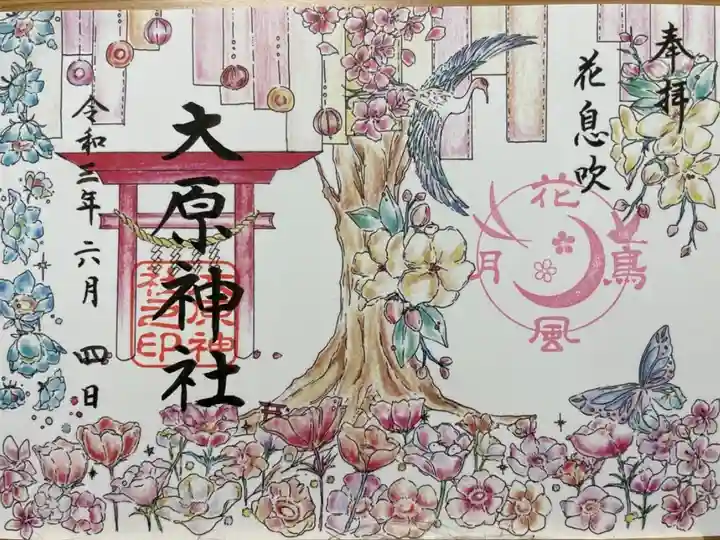 奉拝
花息吹
花
鳥
風
月
大原神社
大原神
社之印
令和三年六月四日